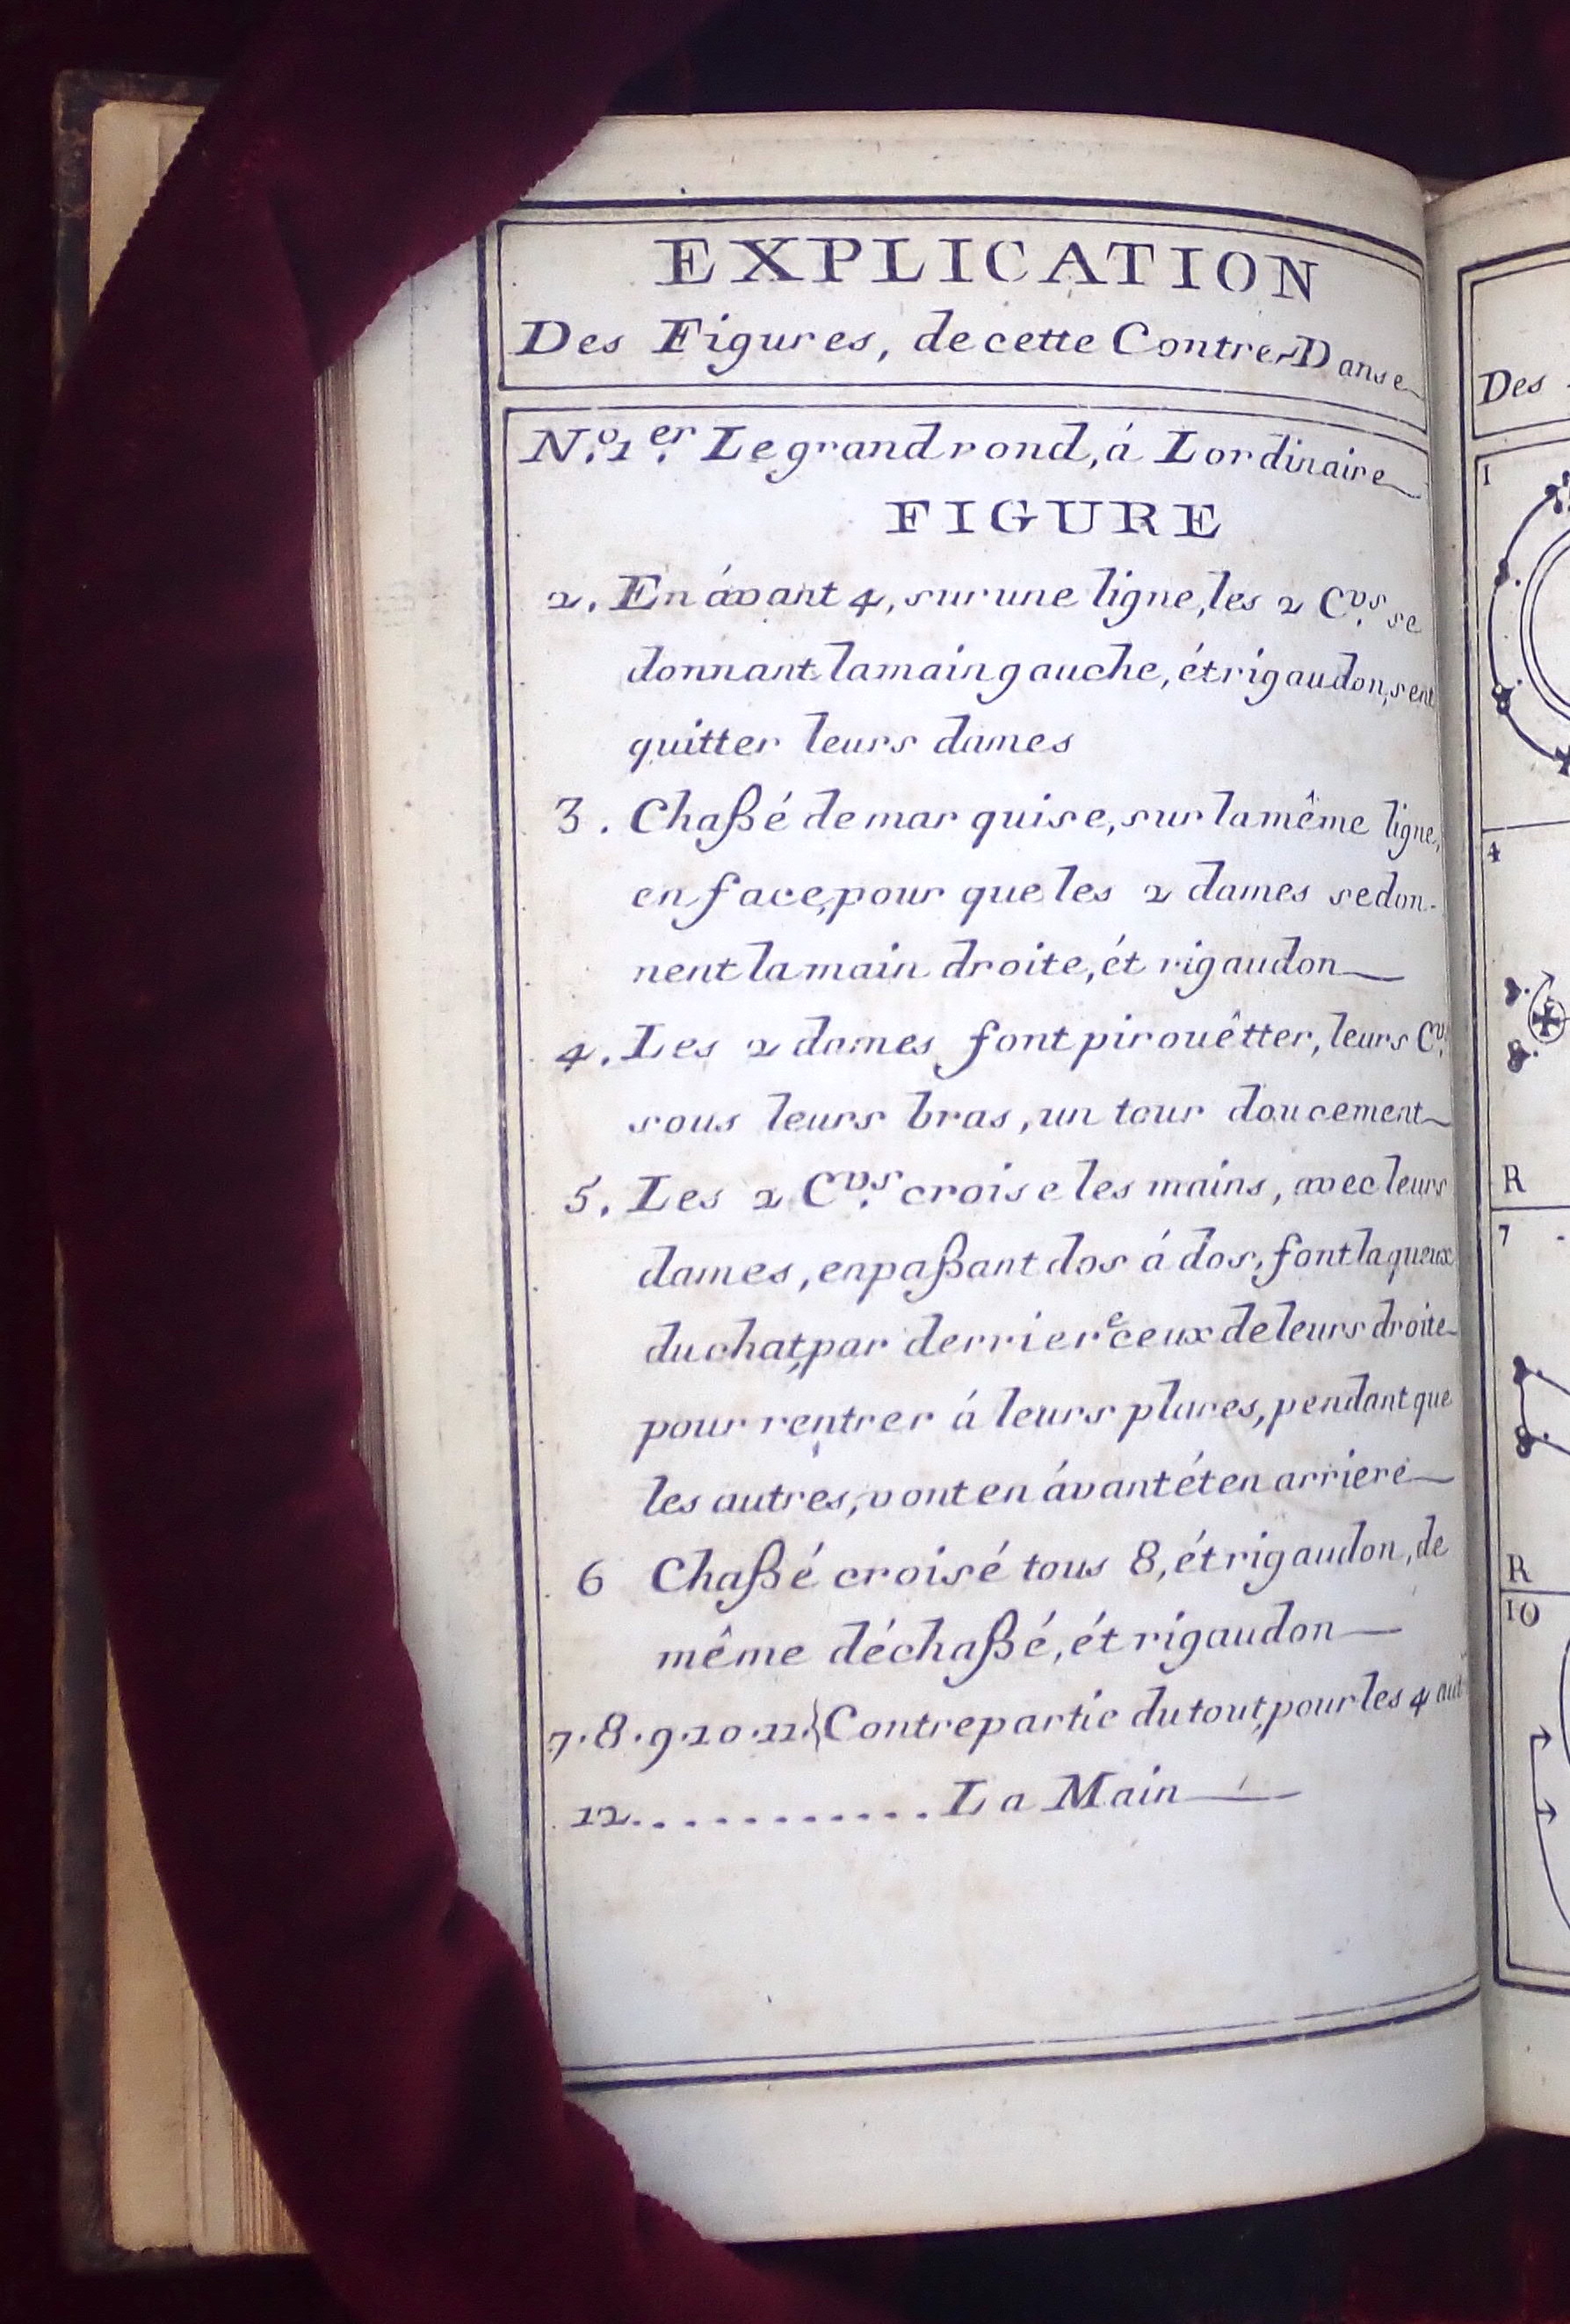 EXPLICATION
Des Figures, de cette Contre-Danse
N.º 1.er Le grand rond, á Lordinaire
FIGURE
2. En ávant 4, sur une ligne, les 2 C.vrs se
donnant la main gauche, ét rigaudon, sent
quitter leurs dames
3. Chaßé de marquise, sur la même ligne,
en face, pour que les 2 dames se don-
nent la main droite, ét rigaudon
4. Les 2 dames font pirouêtter, leurs C.v
sous leurs bras, un tour doucement
5. Les 2 C.vrs croise les mains, avec leurs
dames, en paßant dos á dos, font la queux
du chat, par derriere ceux de leurs droite
pour rentrer á leurs places, pendant que
les autres, vont en ávant ét en arriere
6 Chaßé croisé tous 8, ét rigaudon, de
même déchaßé, ét rigaudon
7.8.9.10.11.} Contrepartie du tout, pour les 4 aut
12........... La Main
Des
1
4
R
7
R
10